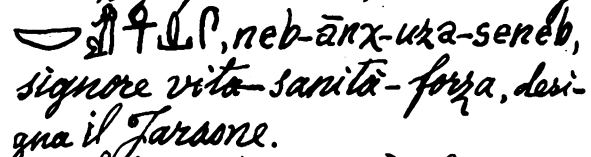 𓎟𓋹𓍑𓋴, neb-ānχ-uza-seneb,
signore vita-sanità-forza, desi-
gna il Faraone.